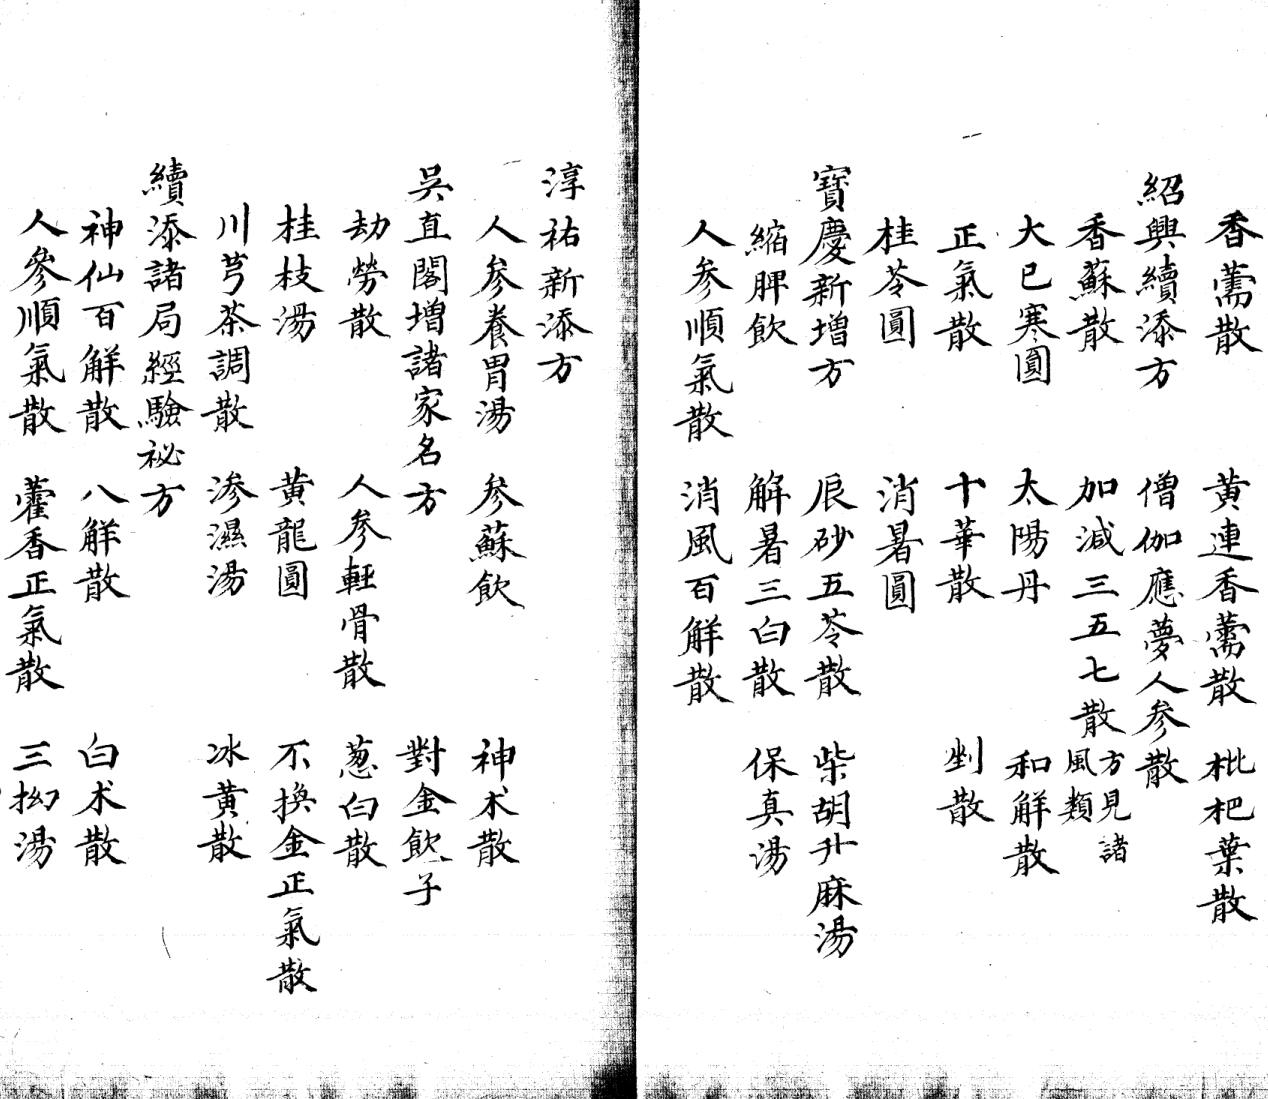 香薷散　黄連香薷散　枇杷葉散
紹興續添方
僧伽應夢人参散
香蘇散　加減三五七散 方見諸風類
大已寒圓　太陽丹　和解散
正氣散　十華散　剉散
桂苓圓　消暑圓
寶慶新増方
辰砂五苓散　柴胡升麻湯
縮脾飲　解暑三白散　保真湯
人参順氣散　消風百解散
淳祐新添方
人参養胃湯　参蘇飲　神朮散
吳直閣増諸家名方
對金飲子
劫勞散　人参輕骨散　葱白散
桂枝湯　黄龍圓　不換金正氣散
川芎茶調散　滲濕湯　冰黄散
續添諸局經驗祕方
神仙百解散　八解散　白朮散
人參順氣散　藿香正氣散　三拗湯